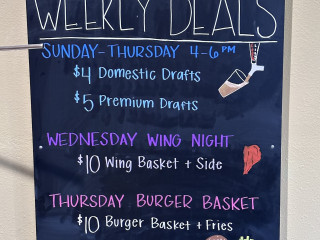 WEEKLY DEALS
SUNDAY-THURSDAY 4-6 PM
$4 Domestic Drafts
$5 Premium Drafts
WEDNESDAY WING NIGHT
$10 Wing Basket + Side
THURSDAY BURGER BASKET
$10 Burger Basket + Fries